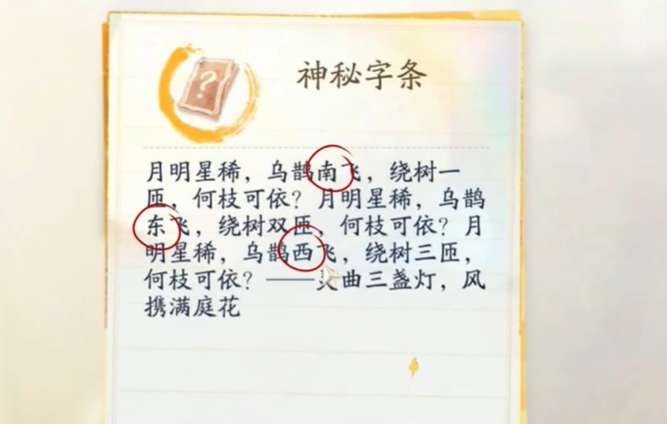 神秘字条
月明星稀，乌鹊南飞，绕树一
匝，何枝可依？月明星稀，乌鹊
东飞，绕树双匝，何枝可依？月
明星稀，乌鹊西飞，绕树三匝，
何枝可依？——曲三盏灯，风
携满庭花